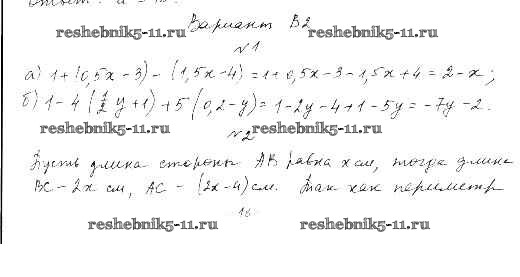 Вариант В2
reshebnik5-11.ru reshebnik5-11.ru
№1
а) 1+(0,5x-3)-(1,5x-4)=1+0,5x-3-1,5x+4=2-x;
б) 1-4(1/2y+1)+5(0,2-y)=1-2y-4+1-5y=-7y-2.
reshebnik5-11.ru reshebnik5-11.ru
№2
Пусть длина стороны AB равна x см, тогда длина
BC - 2x см, AC - (2x-4) см. Так как периметр
16
reshebnik5-11.ru reshebnik5-11.ru